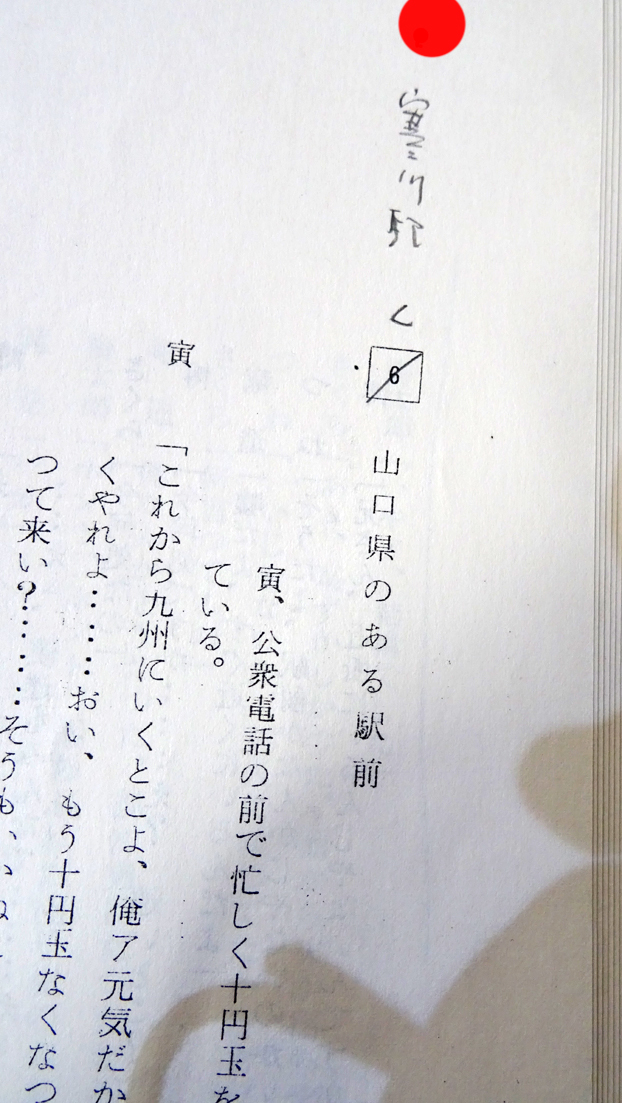 寒川駅 く
6 山口県のある駅前
寅、公衆電話の前で忙しく十円玉を
ている。
寅 「これから九州にいくとこよ、俺ア元気だか
くやれよ………おい、もう十円玉なくなつ
つて来い?………そうも、